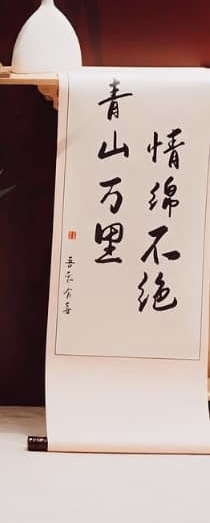 情绵不绝
青山万里